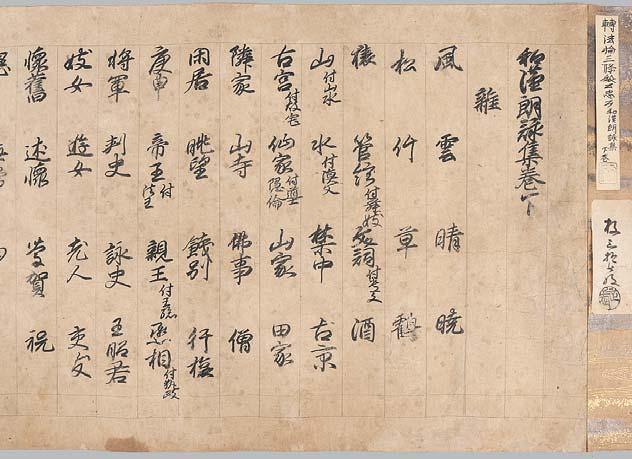 轉法輪三條公忠公和漢朗詠集
下巻
和漢朗詠集巻下
雜
風 雲 晴 暁
松 竹 草 鶴
猿 管絃付舞妓 文詞付遺文 酒
山付山水 水付漁父 禁中 古京
古宮付故宅 仙家付道士隠倫 山家 田家
隣家 山寺 佛事 僧
閑居 眺望 餞別 行旅
庚申 帝王付法王 親王付王孫 丞相付執政
将軍 刺史 詠史 王昭君
妓女 遊女 老人 交友
懐舊 述懐 慶賀 祝